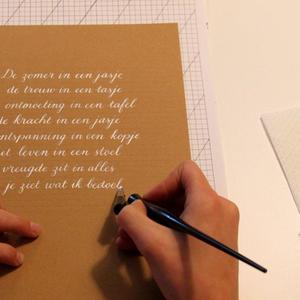 De zomer in een jasje
de trouw in een tasje
ontmoeting in een tafel
de kracht in een jasje
ontspanning in een kopje
et leven in een stoel
vreugde zit in alles
je ziet wat ik bedoel